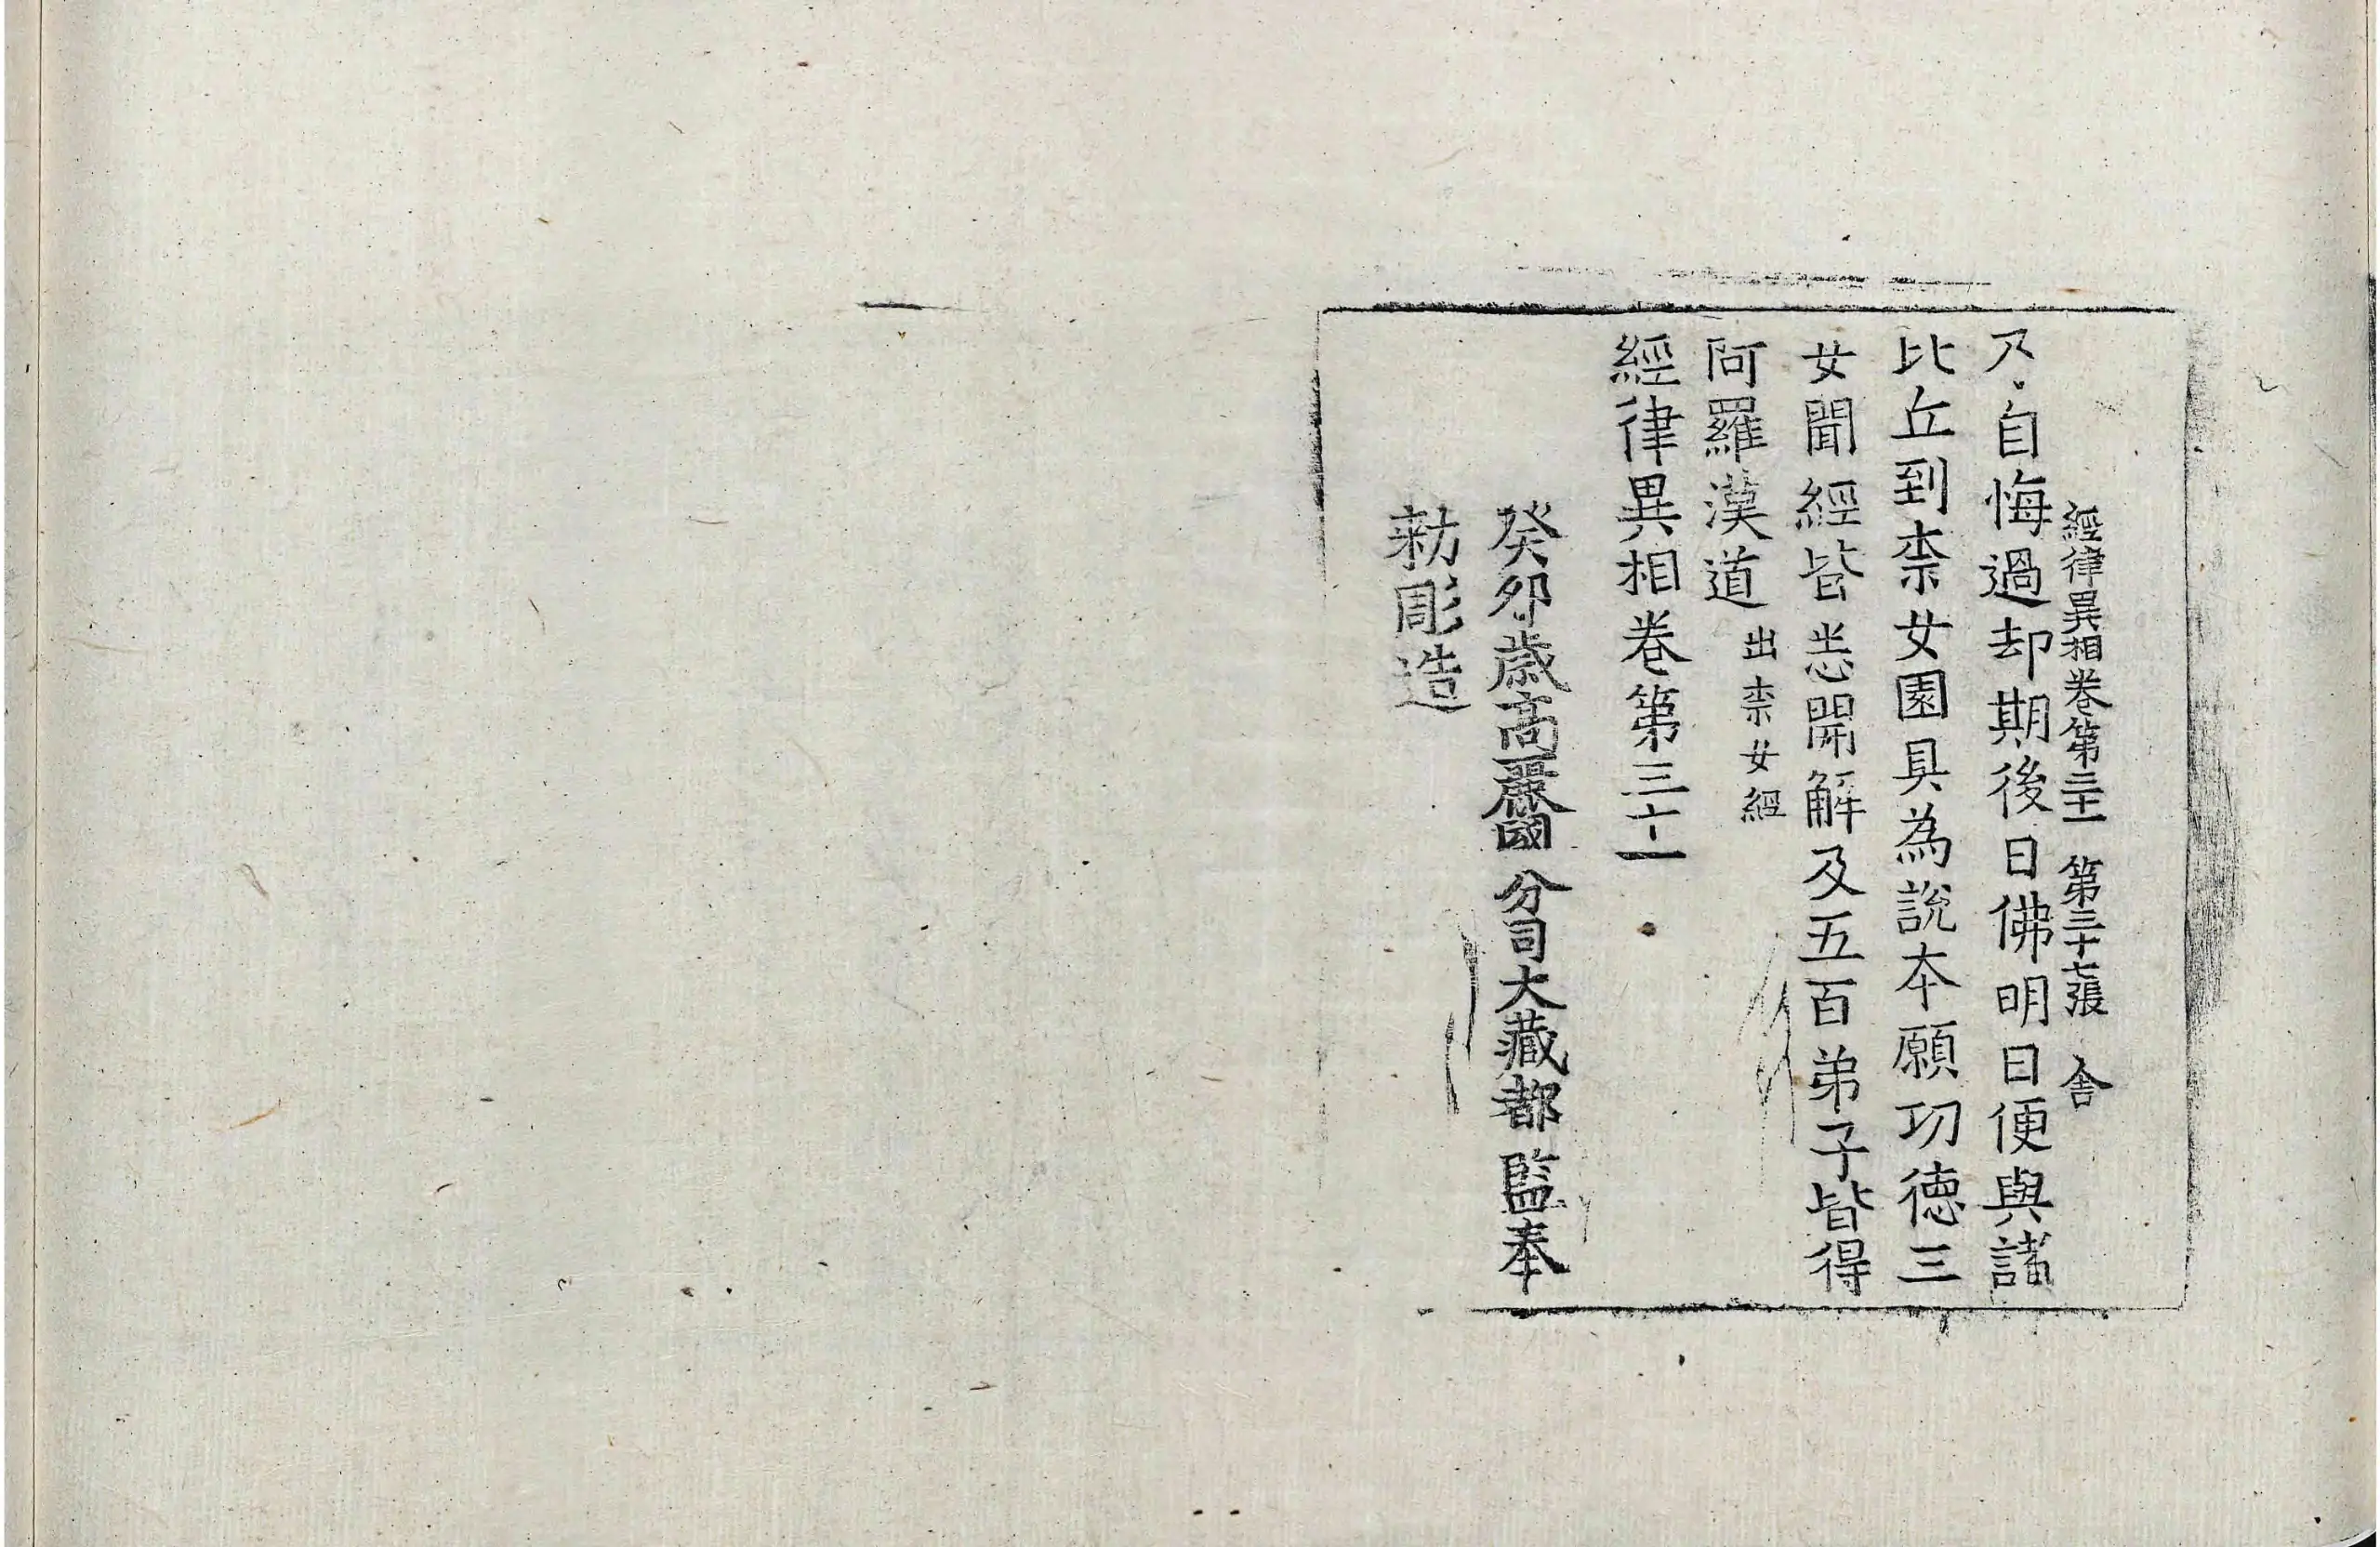 經律異相卷第三十一 第三十七張 舍
乃自悔過却期後日佛明日便與諸
比丘到柰女園具為說本願功德三
女聞經皆悉開解及五百弟子皆得
阿羅漢道 出柰女經
經律異相卷第三十一
癸卯歲高麗國分司大藏都監奉
勑彫造